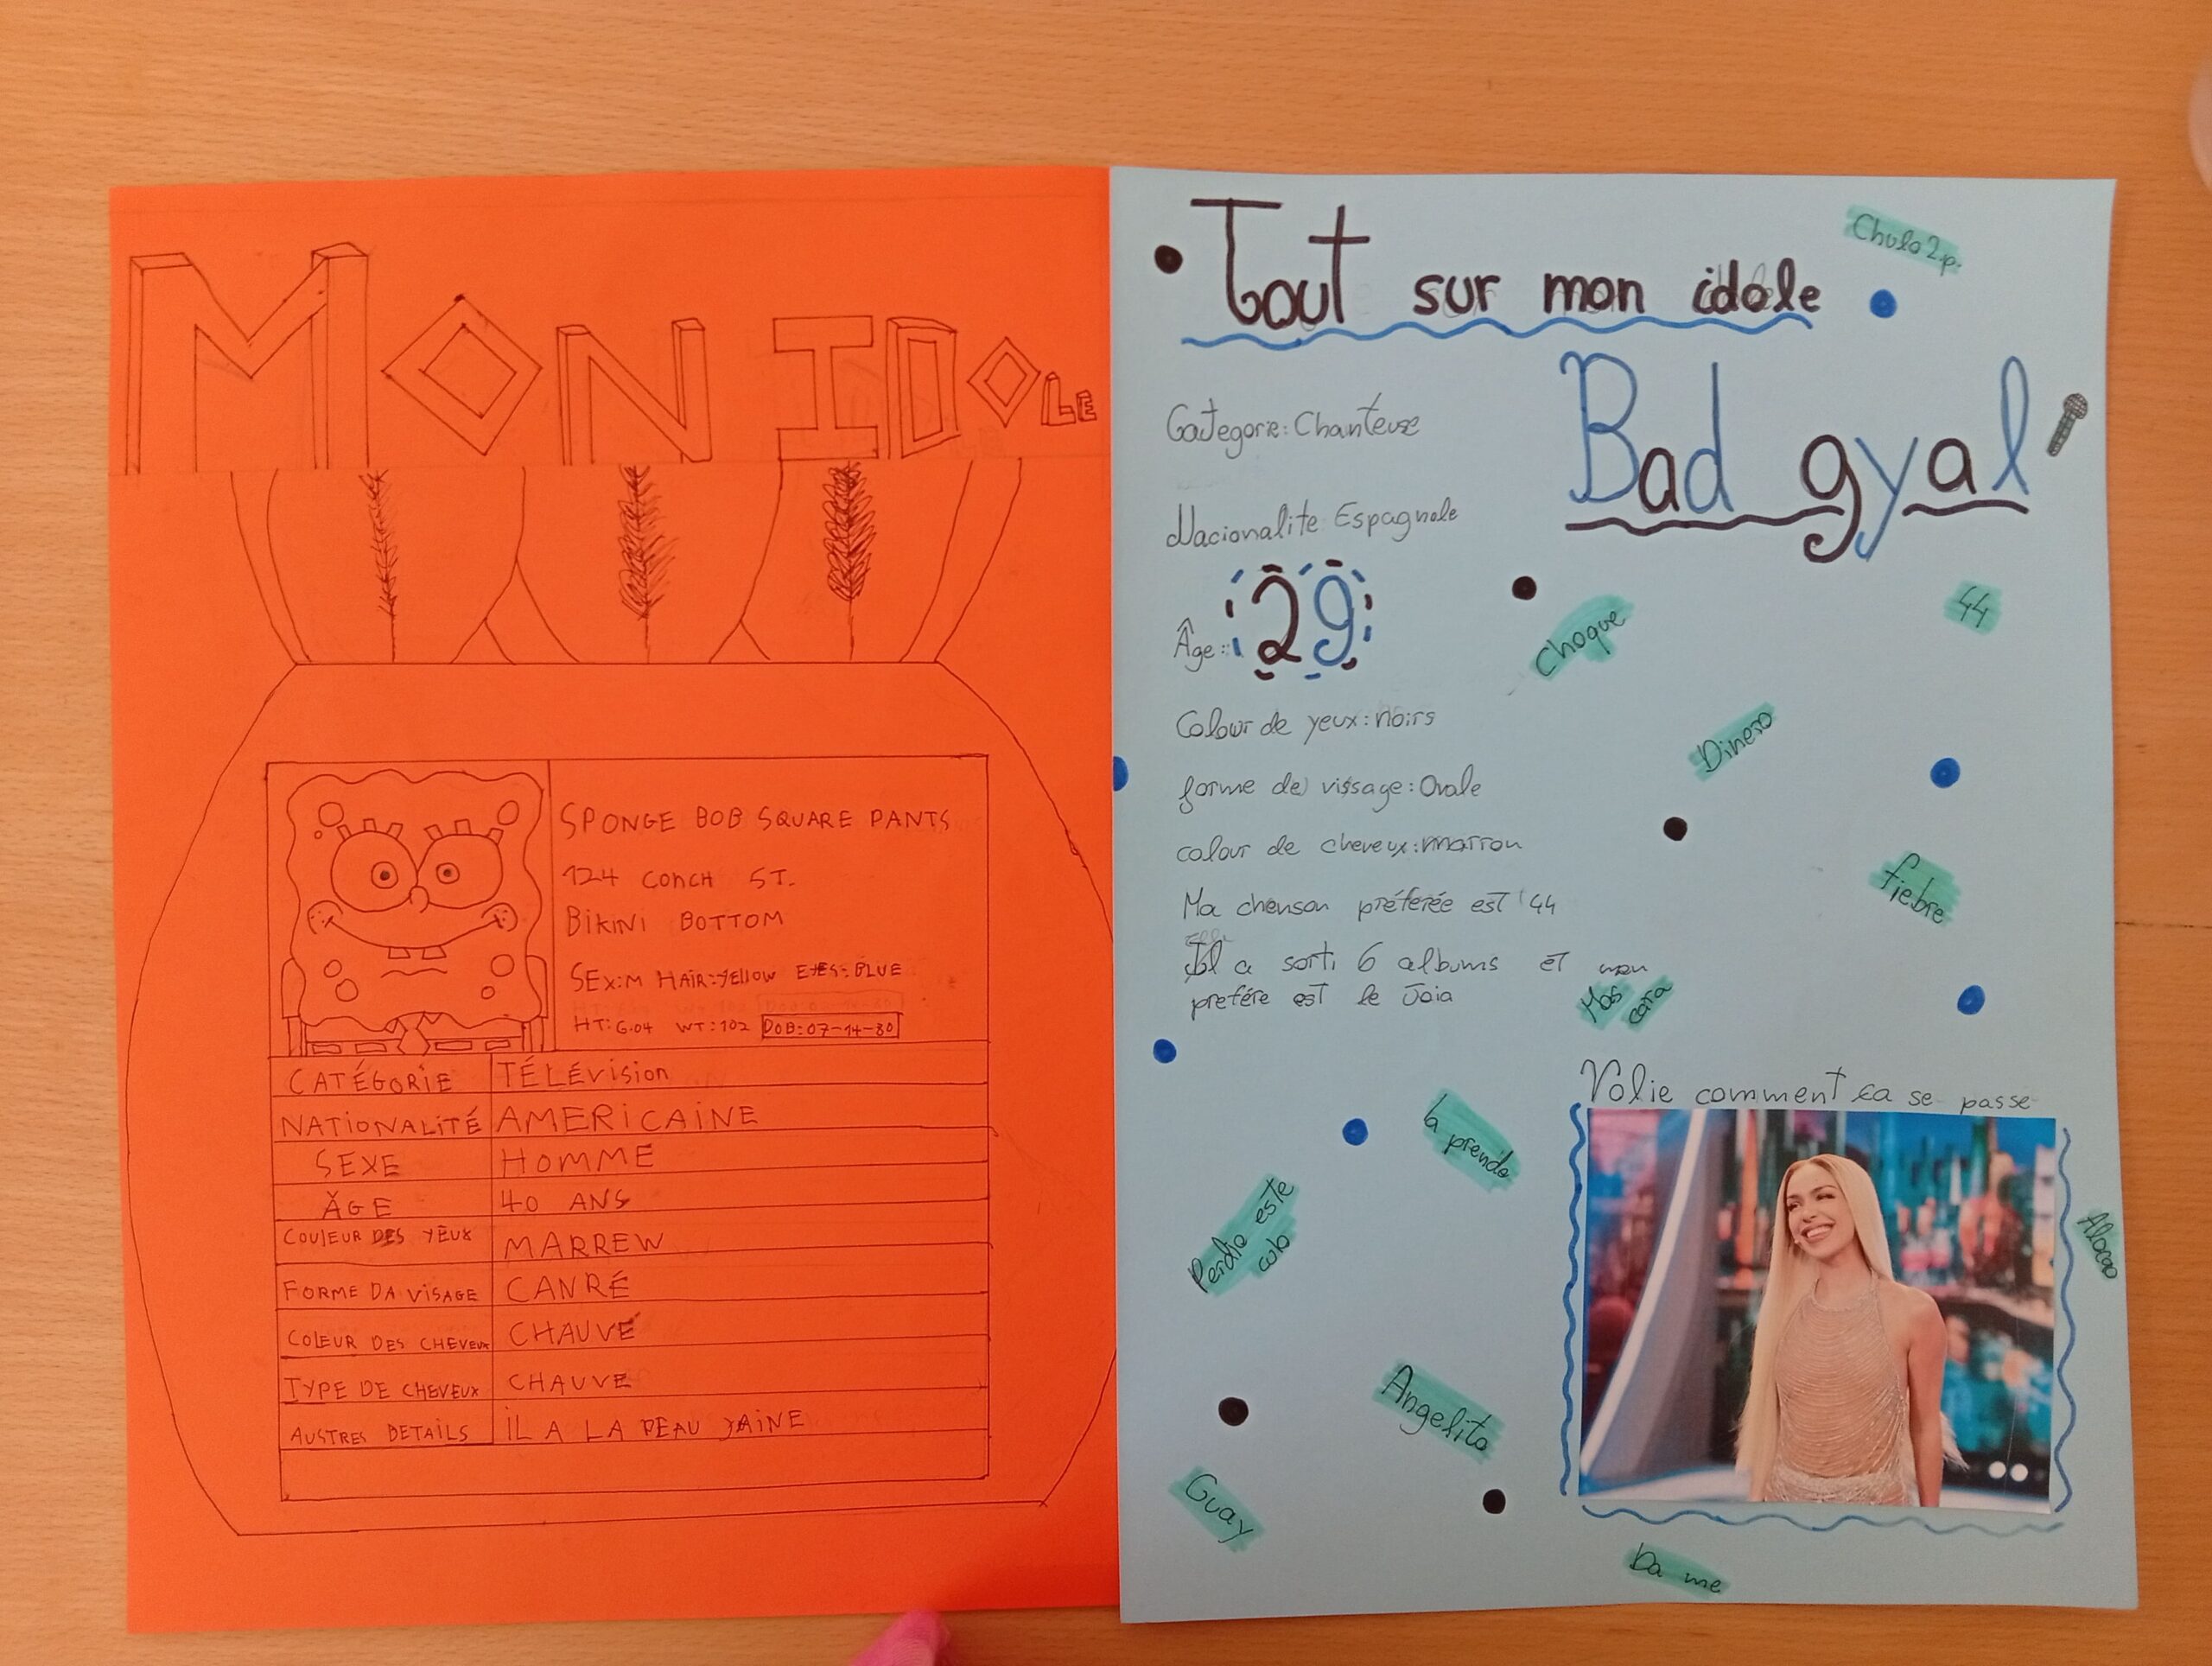 MON IDOLE
SPONGE BOB SQUARE PANTS
124 CONCH ST.
BIKINI BOTTOM
SEX:M HAIR:YELLOW EYES:BLUE
HT:6.04 WT:102 DOB:07-14-80
CATÉGORIE TÉLÉVISION
NATIONALITÉ AMERICAINE
SEXE HOMME
ÂGE 40 ANS
COULEUR DES YEUX MARREW
FORME DA VISAGE CANRÉ
COLEUR DES CHEVEUX CHAUVE
TYPE DE CHEVEUX CHAUVE
AUSTRES DETAILS IL A LA PEAU JAINE
Tout sur mon idole
Chulo 2.p.
Bad gyal
Categorie: Chanteuse
Nacionalite: Espagnole
Âge: 29
Choque
44
Colour de yeux: noirs
Dinero
forme de vissage: Ovale
colour de cheveux: marron
fiebre
Ma chenson préferée est 44
Il a sorti 6 albums et mon
prefére est le Joia
Mas cara
Volie comment ca se passe
la prendo
Perdio este
culo
Alocao
Angelito
Guay
Da me